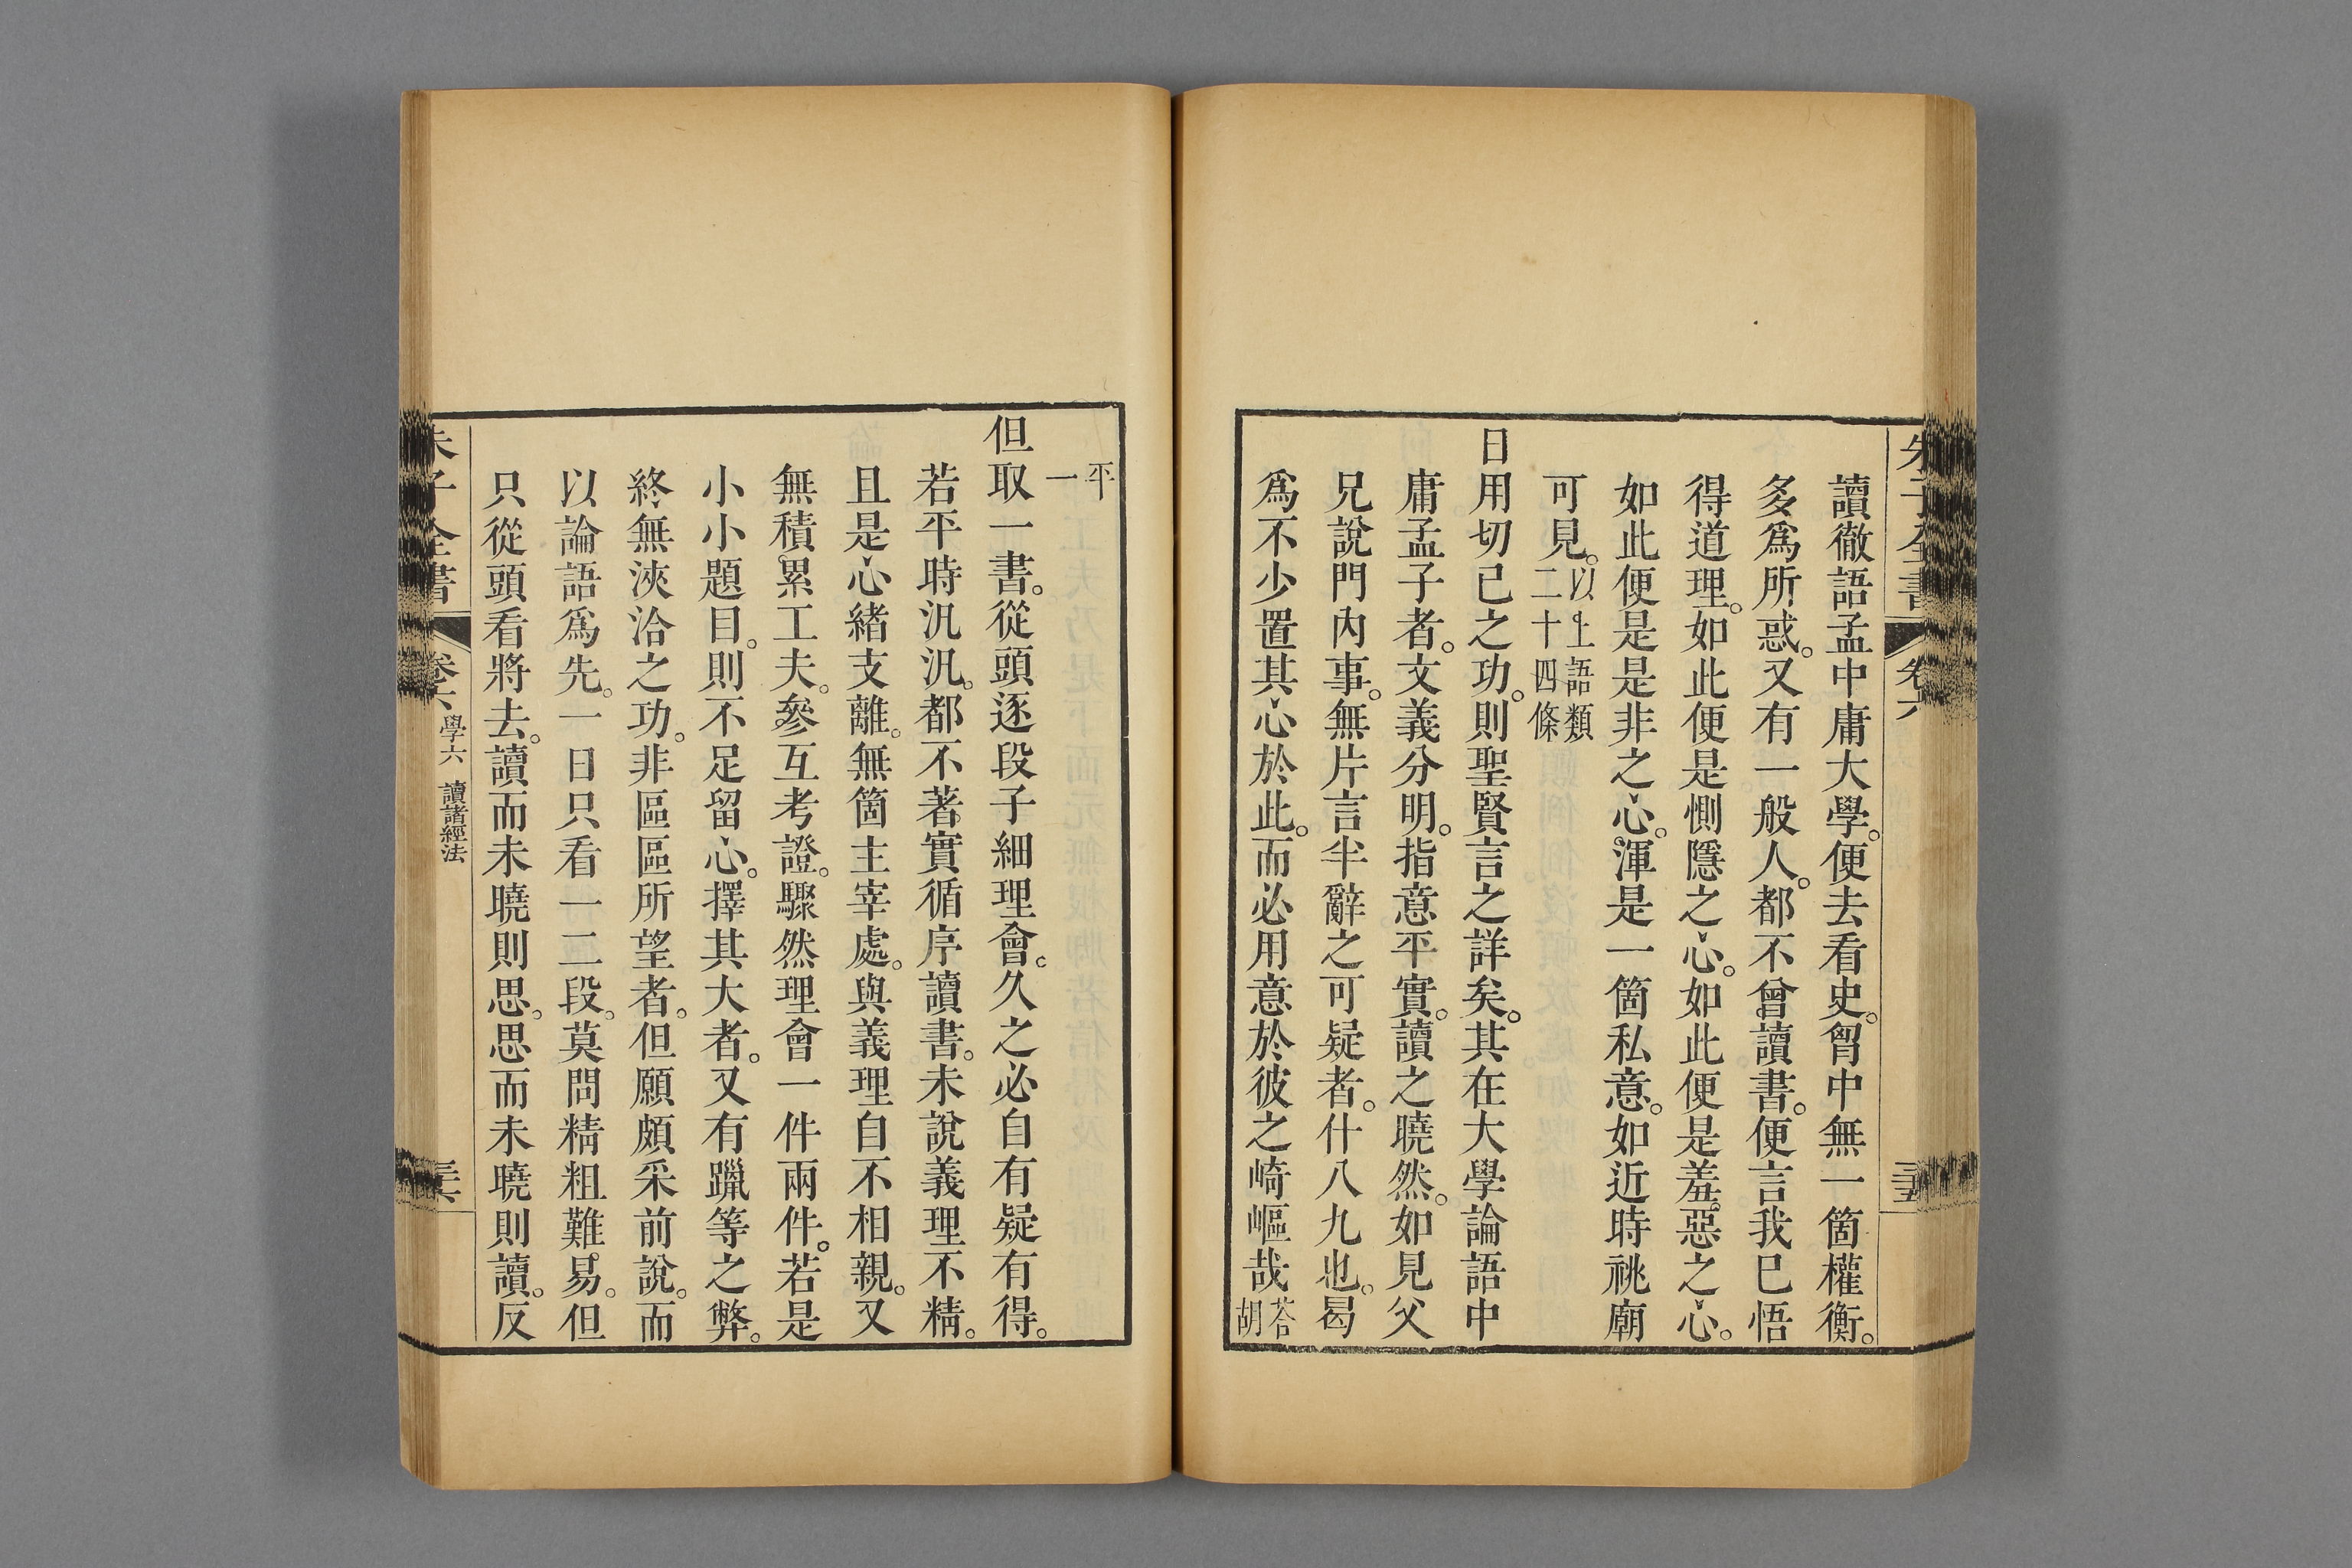 朱子全書 卷六 三五
讀徹語孟中庸大學。便去看史。胷中無一箇權衡。
多爲所惑。又有一般人。都不曾讀書。便言我已悟
得道理。如此便是惻隱之心。如此便是羞惡之心。
如此便是是非之心。渾是一箇私意。如近時祧廟
可見。以上語類二十四條
日用切己之功。則聖賢言之詳矣。其在大學論語中
庸孟子者。文義分明。指意平實。讀之曉然。如見父
兄說門內事。無片言半辭之可疑者。什八九也。曷
爲不少置其心於此。而必用意於彼之崎嶇哉答胡
平一
但取一書。從頭逐段子細理會。久之必自有疑有得。
若平時汎汎。都不著實循序讀書。未說義理不精。
且是心緒支離。無箇主宰處。與義理自不相親。又
無積累工夫。參互考證。驟然理會一件兩件。若是
小小題目。則不足留心。擇其大者。又有躐等之弊。
終無浹洽之功。非區區所望者。但願頗采前說。而
以論語爲先。一日只看一二段。莫問精粗難易。但
只從頭看將去。讀而未曉則思。思而未曉則讀。反
朱子全書 卷六 學六 讀諸經法 三六